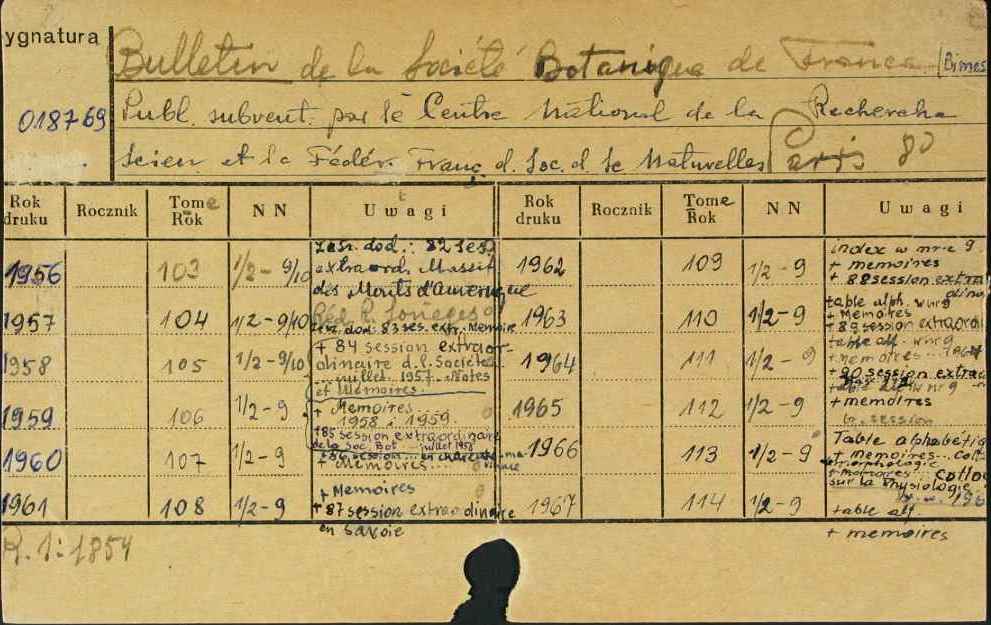 ygnatura
Bulletin de la Société Botanique de France (Bimes
018769
Publ. subvent. par le Centre National de la Recherche
Scien et la Fédér. Franç. d. Soc. d. Sc Naturelles Paris 80
Rok druku Rocznik Tome Rok NN Uwagi Rok druku Rocznik Tome Rok NN Uwagi
1956 103 1/2-9/10
dod.: 82 ses.
extraord. Massif
des Monts d'Auvergne
1957 104 1/2-9/10
dod. 83 ses. extr. Memoire
1958 105 1/2-9/10
+ 84 session extraor-
dinaire d.l. Société
juillet 1957. Notes
et Mémoires.
1959 106 1/2-9
+ Memoires
1958 1959
+85 session extraordinaire
de la Soc. Bot. juillet 1958
1960 107 1/2-9
+86 session
+ Memoires...
1961 108 1/2-9
+ Memoires
+87 session extraordinaire
en Savoie
1962 109 1/2-9
index w nr-e 9
+ memoires
+ 88 session extra
1963 110 1/2-9
table alph. w nr 9
+ Memoires
+ 89 session extraord
1964 111 1/2-9
table alf. w nr 9
+ memoires... 1964
+ 90 session extrao
1965 112 1/2-9
+ memoires
session
1966 113 1/2-9
Table alphabétiq
+ Memoires... coll
morphologie
+ Memoires... Colloq
sur la Physiologie
1967 114 1/2-9
table alf.
+ memoires
R. 1: 1854